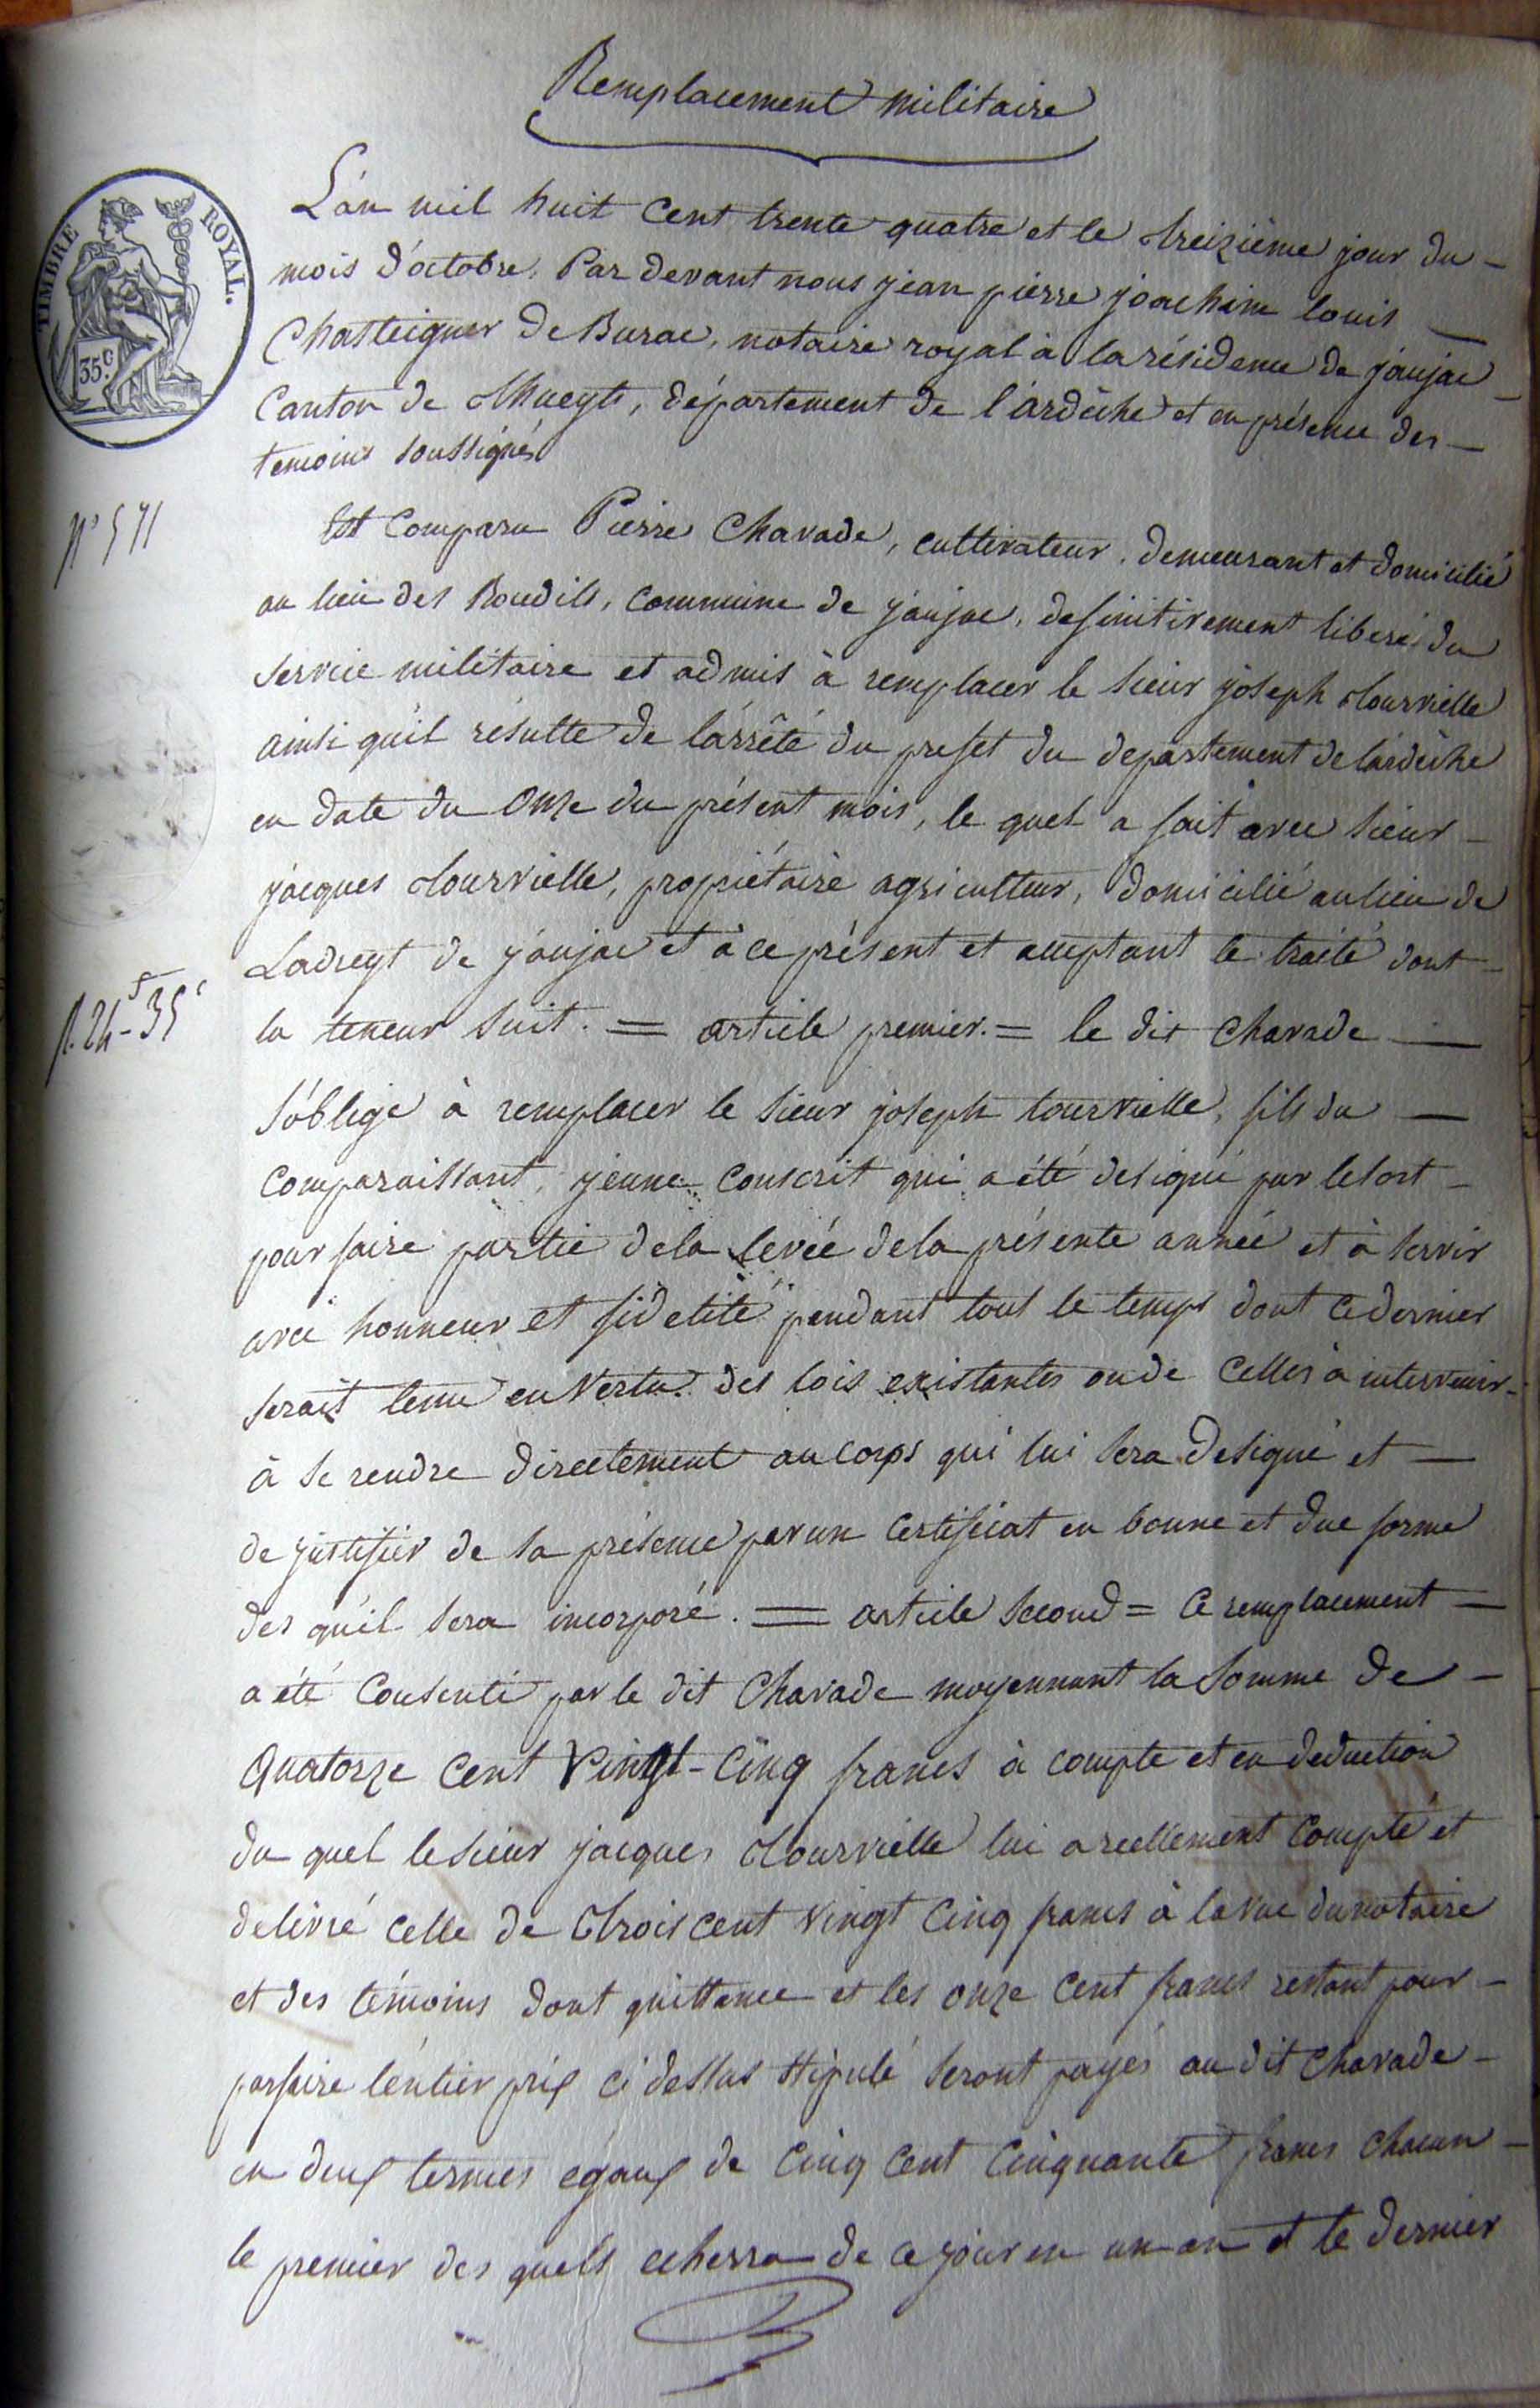 Remplacement militaire
TIMBRE ROYAL.
35 c.
L'an mil huit cent trente quatre et le treizième jour du
mois d'octobre. Par devant nous jean pierre joachim louis
Chasteigner De Burac, notaire royal à la résidence de jaujac
Canton de Thueyts, département de l'ardèche et en présence des
temoins soussignés
N° 571
Est comparu Pierre Charade, cultivateur, demeurant et domicilié
au lieu des Roudils, commune de jaujac, definitivement liberé du
service militaire et admis à remplacer le sieur joseph tourvielle
ainsi qu'il résulte de l'arrêté du prefet du departement de l'ardèche
en date du onze du présent mois, le quel a fait avec sieur
jacques tourvielle, propriétaire agriculteur, domicilié au lieu de
Ladreyt de jaujac et à ce présent et acceptant le traité dont
la teneur suit. = article premier. = le dit Charade
s'oblige à remplacer le sieur joseph tourvielle, fils du
comparaissant, jeune conscrit qui a été designé par le sort
pour faire partie de la levée de la présente année et à servir
avec honneur et fidelité pendant tout le temps dont ce dernier
serait tenu en vertu des lois existantes ou de celles à intervenir
à se rendre directement au corps qui lui sera designé et
de justifier de sa présence par un certificat en bonne et due forme
des qu'il sera incorporé. = article second = Ce remplacement
a été consenti par le dit Charade moyennant la somme de
quatorze cent vingt-cinq francs à compte et en deduction
du quel le sieur jacques tourvielle lui a reellement compté et
delivré celle de trois cent vingt cinq francs à la vue du notaire
et des témoins dont quittance et les onze cent francs restant pour
parfaire l'entier prix ci dessus stipulé seront payés au dit Charade
en deux termes egaux de cinq cent cinquante francs chacun
le premier des quels echerra de ce jour en un an et le dernier